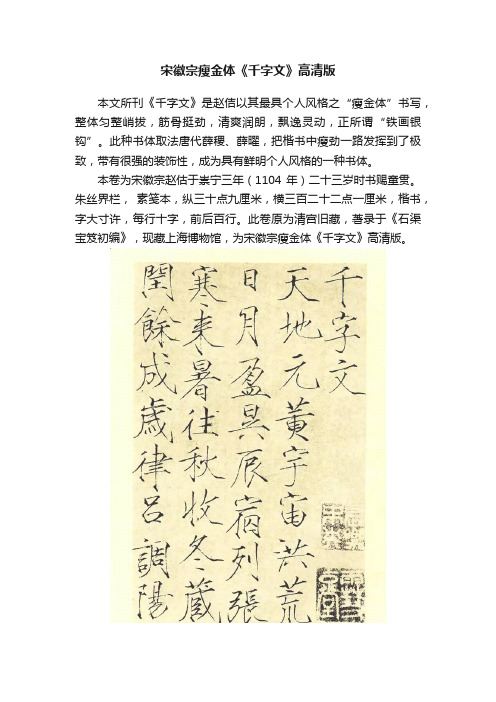 宋徽宗瘦金体《千字文》高清版
本文所刊《千字文》是赵佶以其最具个人风格之“瘦金体”书写，
整体匀整峭拔，筋骨挺劲，清爽润朗，飘逸灵动，正所谓“铁画银
钩”。此种书体取法唐代薛稷、薛曜，把楷书中瘦劲一路发挥到了极
致，带有很强的装饰性，成为具有鲜明个人风格的一种书体。
本卷为宋徽宗赵估于崇宁三年（1104 年）二十三岁时书赐童贯。
朱丝界栏， 素笺本，纵三十点九厘米，横三百二十二点一厘米，楷书，
字大寸许，每行十字，前后百行。此卷原为清宫旧藏，著录于《石渠
宝笈初编》，现藏上海博物馆，为宋徽宗瘦金体《千字文》高清版。
千字文
天地元黄宇宙洪荒
日月盈昃辰宿列張
寒来暑往秋收冬蔵
閏餘成歲律吕調陽